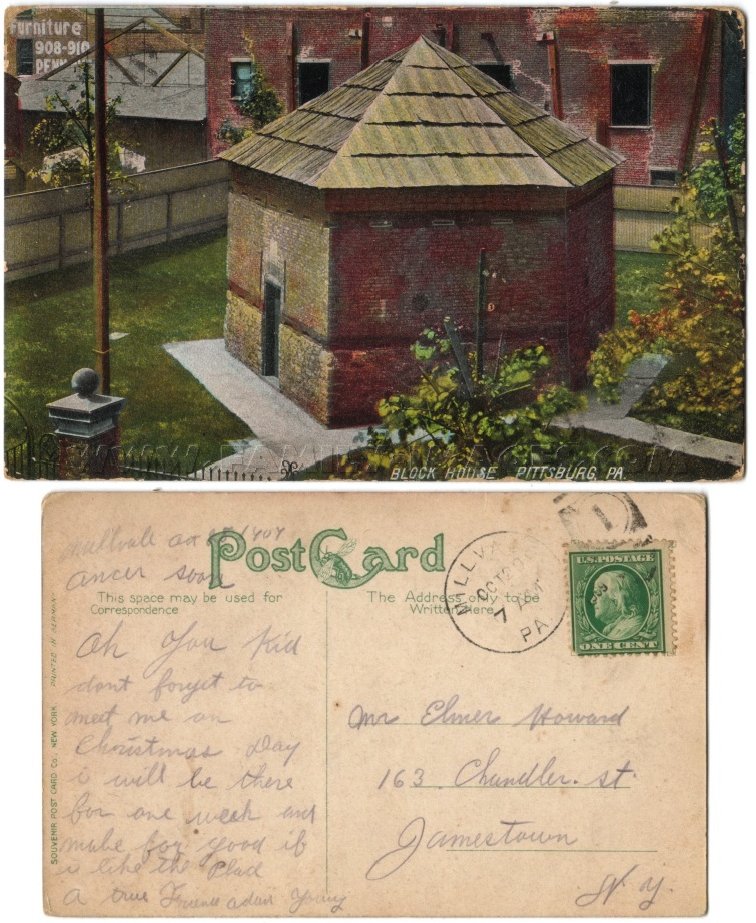 Furniture
908-910
PENN
BLOCK HOUSE PITTSBURG, PA.
Post Card
This space may be used for
Correspondence
The Address only to be
Written Here
MILLVA
OCT
7 AM
PA
1
1909
U.S. POSTAGE
ONE CENT
SOUVENIR POST CARD Co. NEW YORK. PRINTED IN GERMANY
millvale
ancer soon
Oh You Kid
dont forget to
meet me on
Christmas Day
i will be there
for one week and
make for good if
i like the Plad
A true Friend adam Young
Mr Elmer Howard
163 Chandler. st.
Jamestown
N. Y.